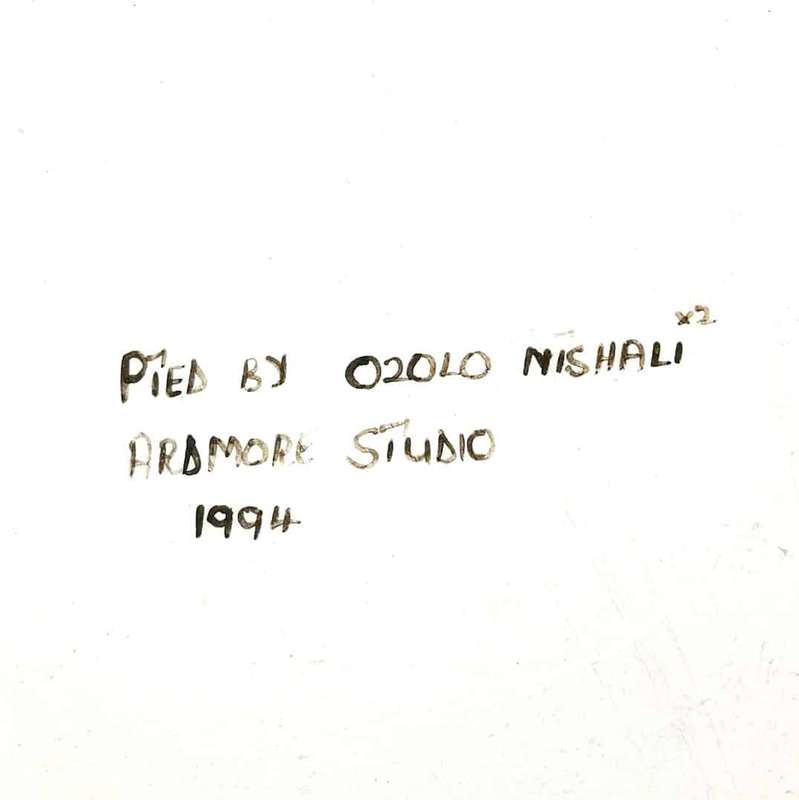 PTED BY OZOLO NISHALI x2
ARDMORE STUDIO
1994